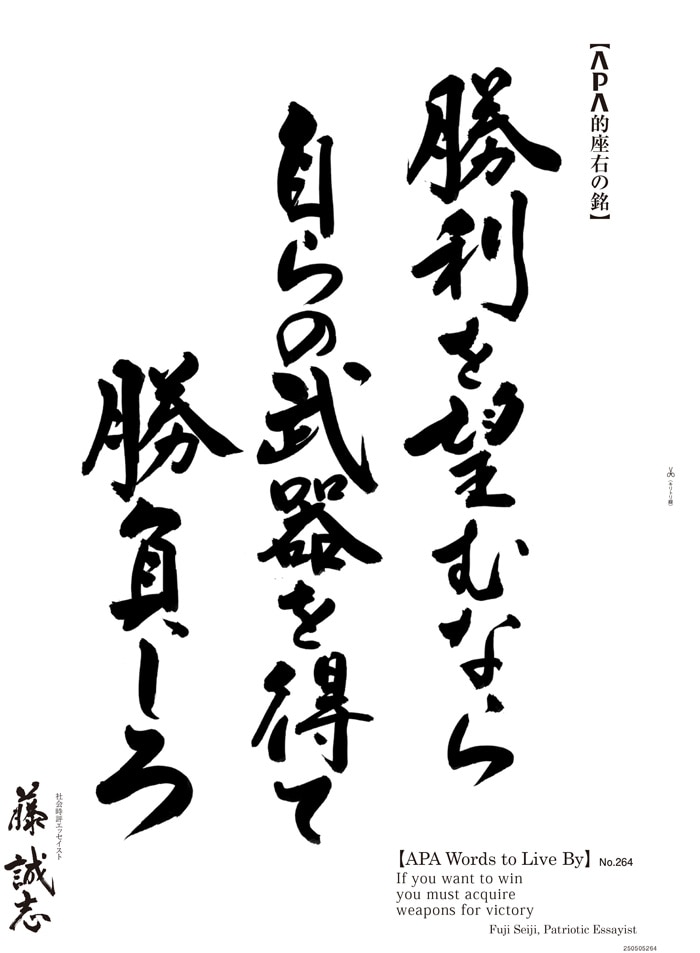 【APA的座右の銘】
勝利を望むなら
自らの武器を得て
勝負しろ
社会時評エッセイスト
藤誠志
(キリトリ線)
【APA Words to Live By】 No.264
If you want to win
you must acquire
weapons for victory
Fuji Seiji, Patriotic Essayist
250505264